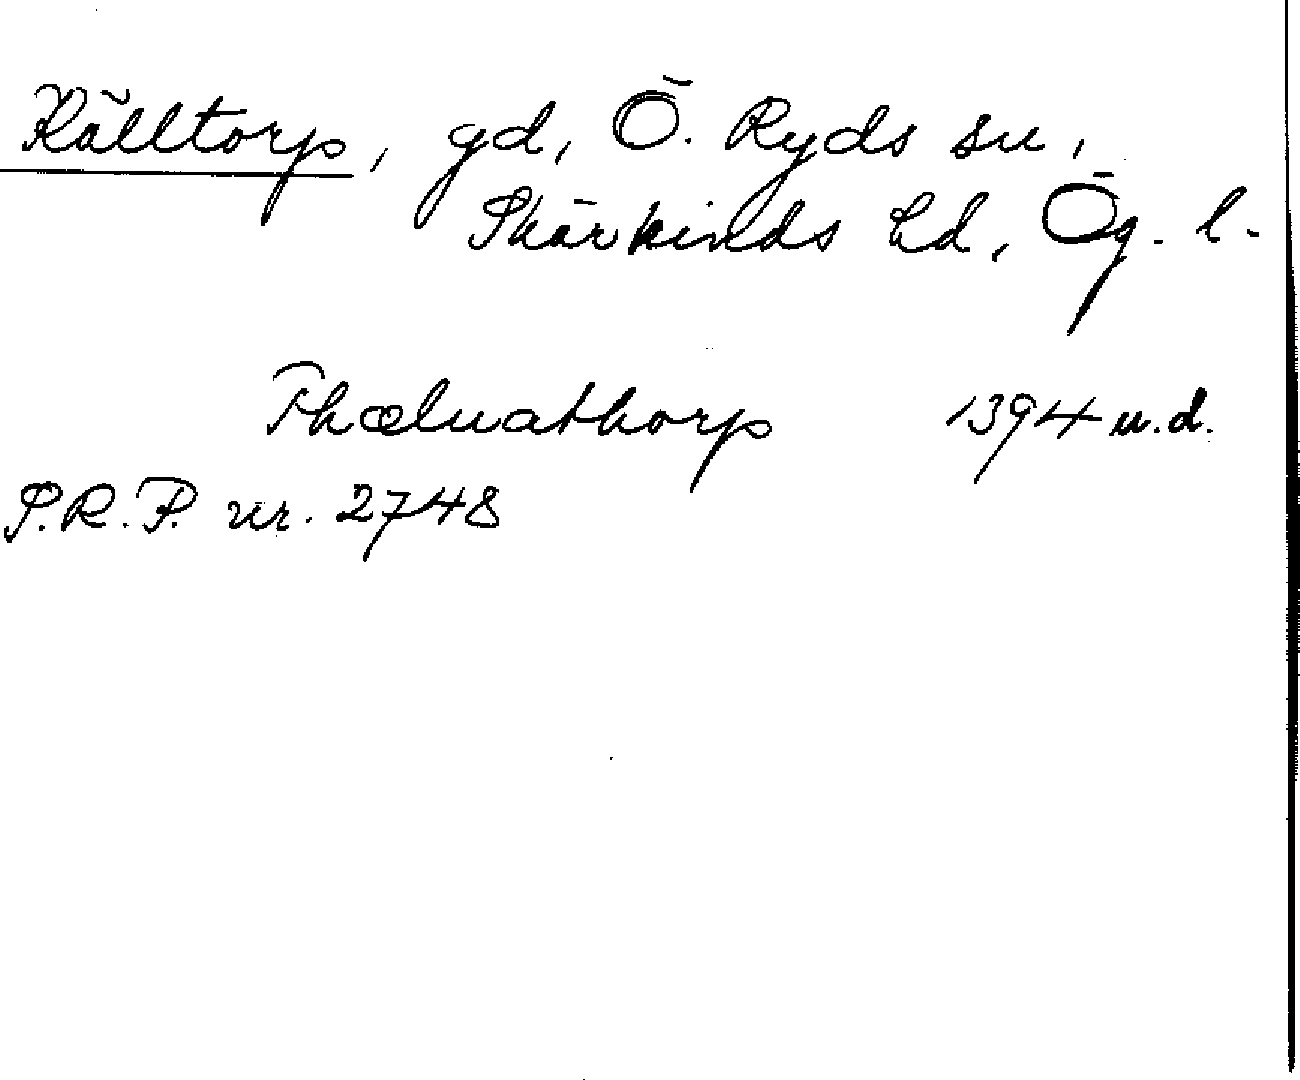 Källtorp, gd, Ö. Ryds sn,
Skärkinds hd, Ög. l.
Thæluathorp 1394 u.d.
S.R.P. nr. 2748